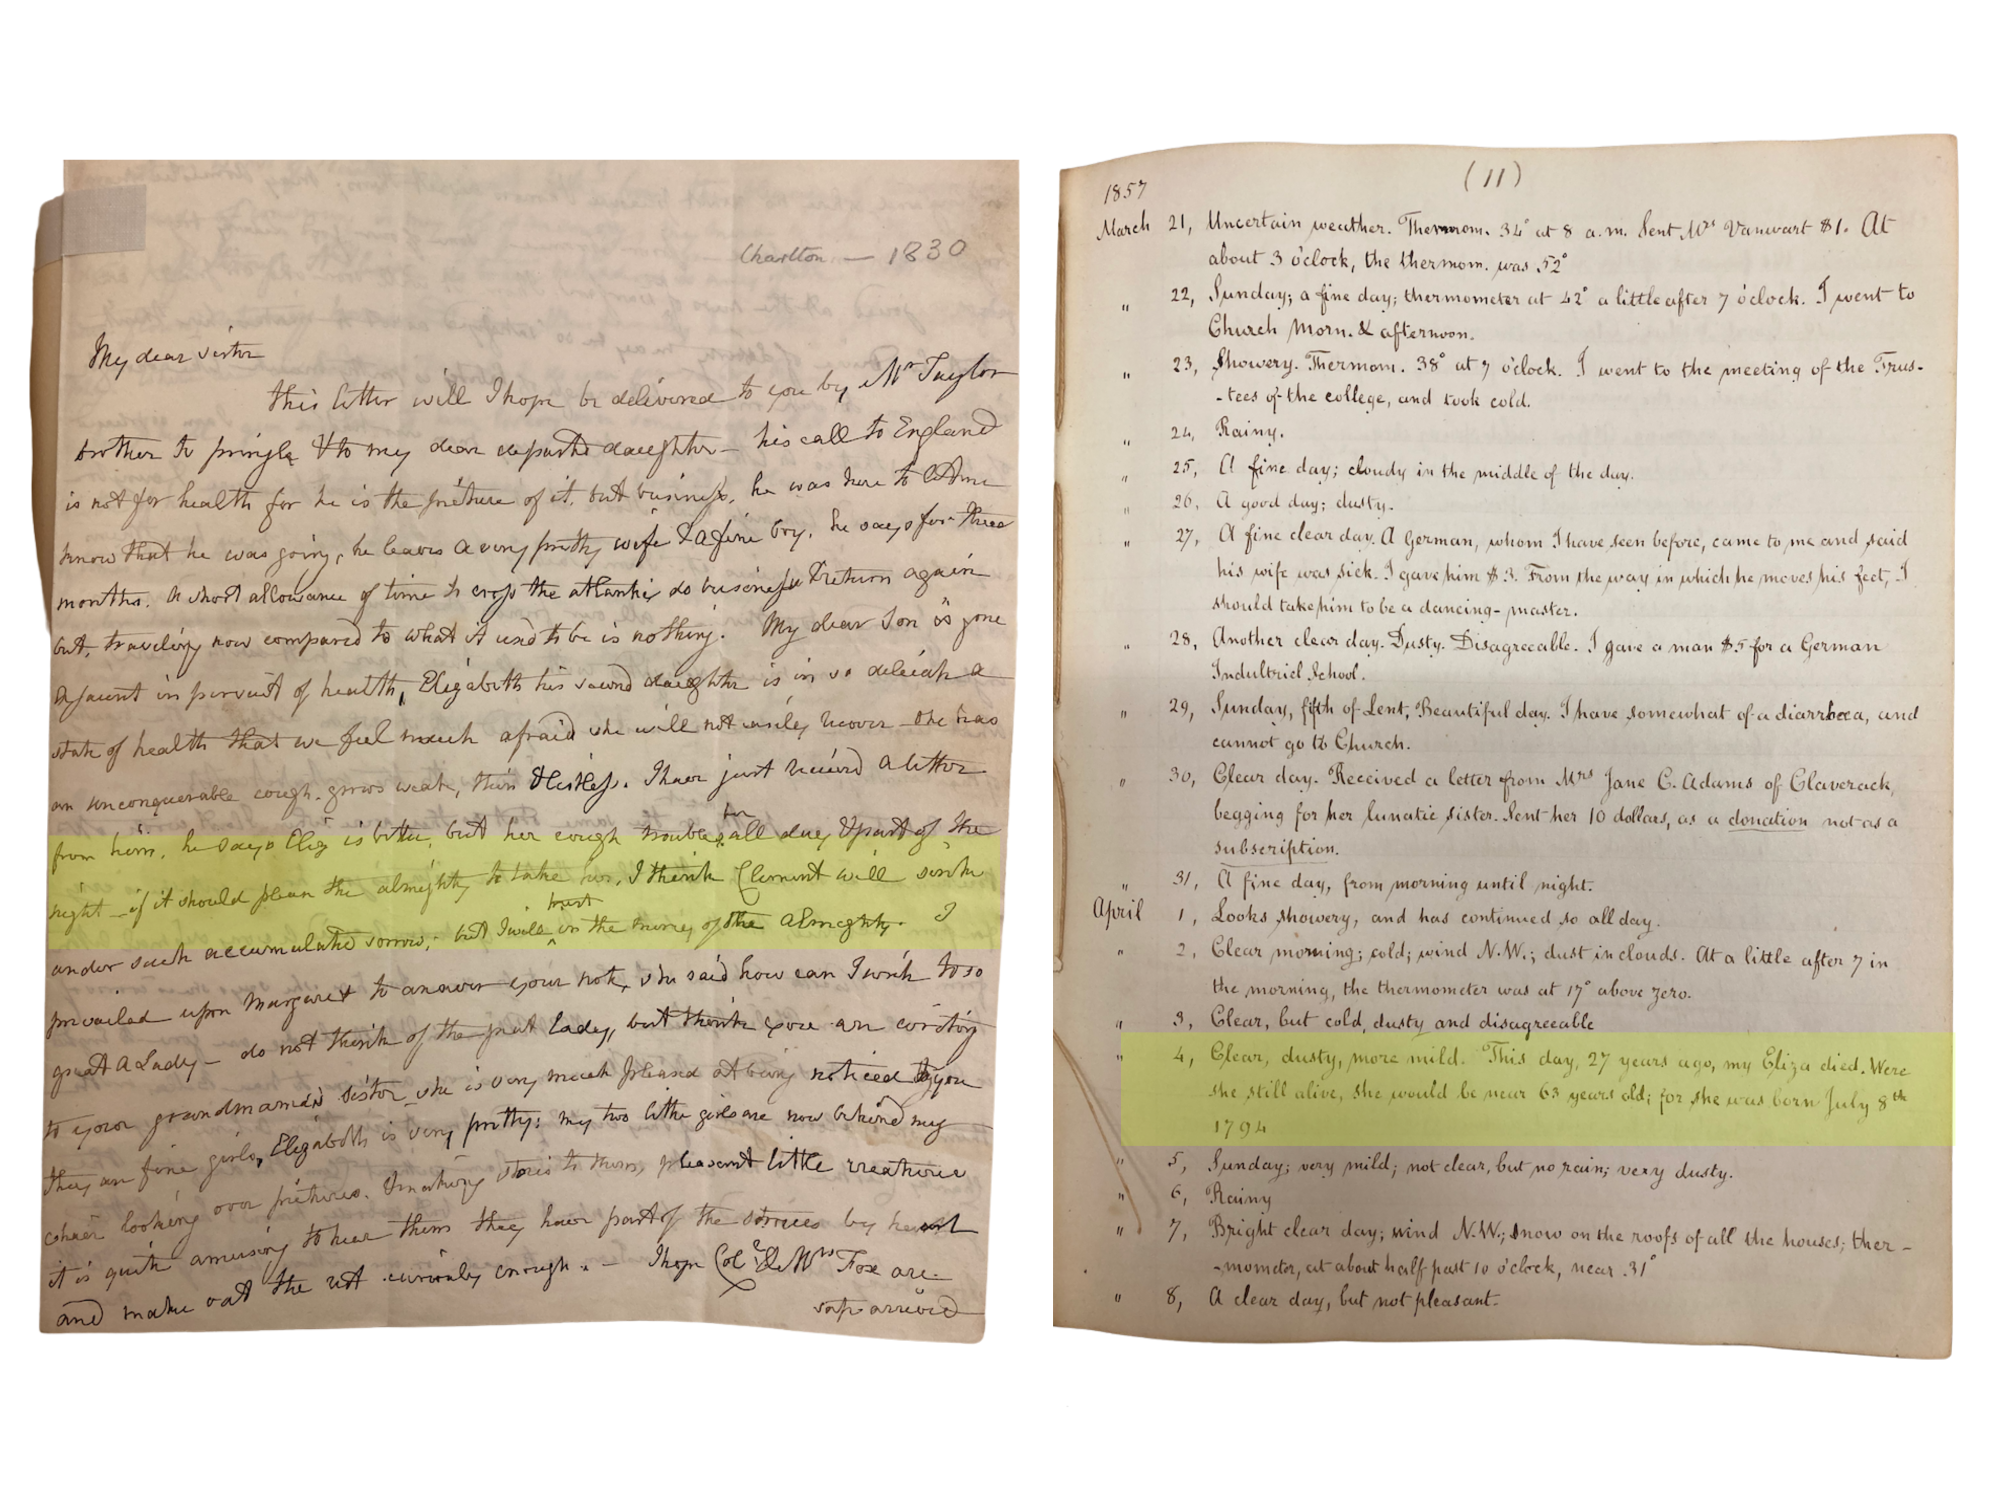 Charlton — 1830
My dear sister
this letter will I hope be delivered to you by Mr Taylor
brother to pringle & to my dear departed daughter — his call to England
is not for health for he is the picture of it, but business, he was here to let me
know that he was going, he leaves a very pretty wife & a fine boy. he says for three
months. a short allowance of time to cross the atlantic do business & return again
but, traveling now compared to what it used to be is nothing. My dear Son is gone
a jaunt in persuit of health, Elizabeth his second daughter is in so delicate a
state of health that we feel much afraid she will not easily recover — she has
an unconquerable cough. grows weak, thin & listless. I have just received a letter
from him. he says Eliz is better, but her cough troubles her all day & part of the
night — if it should please the almighty to take her, I think Clement will sink
under such accumulated sorrow, but I will trust in the mercy of the almighty. I
prevailed upon Margaret to answer your note, she said how can I write to so
great a Lady — do not think of the great Lady, but think you are writing
to your grandmama's sister she is very much pleased at being noticed by you
they are fine girls, Elizabeth is very pretty: my two little girls are now behind my
chair looking over pictures. & making stories to them, pleasant little creatures
it is quite amusing to hear them they have part of the stories by heart
and make out the rest curiously enough. — I hope Col & Mrs Fox are
safe arrived
(11)
1857
March 21, Uncertain weather. Thermom. 34° at 8 a.m. Sent Mrs Vanwart $1. At
about 3 o'clock, the thermom. was 52°
" 22, Sunday; a fine day; thermometer at 42° a little after 7 o'clock. I went to
Church Morn. & afternoon.
" 23, Showery. Thermom. 38° at 7 o'clock. I went to the meeting of the Trus-
-tees of the college, and took cold.
" 24, Rainy.
" 25, A fine day; cloudy in the middle of the day.
" 26, A good day; dusty.
" 27, A fine clear day. A German, whom I have seen before, came to me and said
his wife was sick. I gave him $3. From the way in which he moves his feet, I
should take him to be a dancing-master.
" 28, Another clear day. Dusty. Disagreeable. I gave a man $5 for a German
Indultriel School.
" 29, Sunday, fifth of Lent, Beautiful day. I have somewhat of a diarrhœa, and
cannot go to Church.
" 30, Clear day. Received a letter from Mrs Jane C. Adams of Claverack,
begging for her lunatic sister. Sent her 10 dollars, as a donation not as a
subscription.
" 31, A fine day, from morning until night.
April 1, Looks showery, and has continued so all day.
" 2, Clear morning; cold; wind N.W.; dust in clouds. At a little after 7 in
the morning, the thermometer was at 17° above zero.
" 3, Clear, but cold, dusty and disagreeable
" 4, Clear, dusty, more mild. This day, 27 years ago, my Eliza died. Were
she still alive, she would be near 63 years old; for she was born July 8th
1794
" 5, Sunday; very mild; not clear, but no rain; very dusty.
" 6, Rainy
" 7, Bright clear day; wind N.W.; snow on the roofs of all the houses; ther-
-mometer, at about half past 10 o'clock, near 31°
" 8, A clear day, but not pleasant.